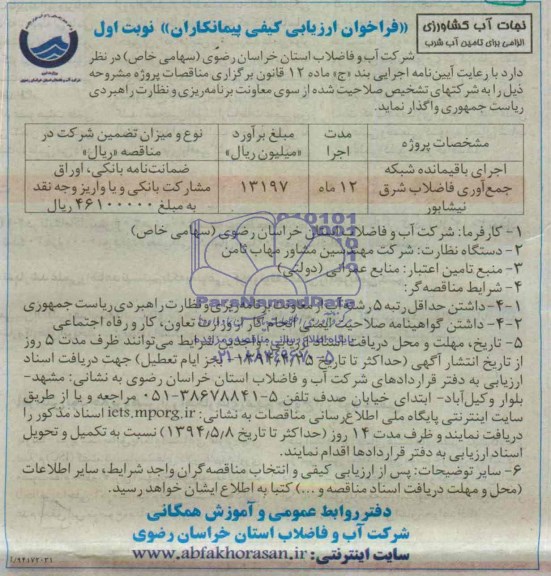 نجات آب کشاورزی
الزامی برای تامین آب شرب
«فراخوان ارزیابی کیفی پیمانکاران» نوبت اول
شرکت آب و فاضلاب استان خراسان رضوی (سهامی خاص) در نظر
دارد با رعایت آیین‌نامه اجرایی بند «ج» ماده ۱۲ قانون برگزاری مناقصات پروژه مشروحه
ذیل را به شرکتهای تشخیص صلاحیت شده از سوی معاونت برنامه‌ریزی و نظارت راهبردی
ریاست جمهوری واگذار نماید.
مشخصات پروژه
مدت اجرا
مبلغ برآورد «میلیون ریال»
نوع و میزان تضمین شرکت در مناقصه «ریال»
اجرای باقیمانده شبکه
جمع‌آوری فاضلاب شرق
نیشابور
۱۲ ماه
۱۳۱۹۷
ضمانت‌نامه بانکی، اوراق
مشارکت بانکی و یا واریز وجه نقد
به مبلغ ۴۶۱۰۰۰۰۰۰ ریال
۱- کارفرما: شرکت آب و فاضلاب استان خراسان رضوی (سهامی خاص)
۲- دستگاه نظارت: شرکت مهندسین مشاور مهاب ثامن
۳- منبع تامین اعتبار: منابع عمرانی (دولتی)
۴- شرایط مناقصه‌گر:
۴-۱- داشتن حداقل رتبه ۵ رشته آب از معاونت برنامه‌ریزی و نظارت راهبردی ریاست جمهوری
۴-۲- داشتن گواهینامه صلاحیت ایمنی انجام کار از وزارت تعاون، کار و رفاه اجتماعی
۵- تاریخ، مهلت و محل دریافت اسناد ارزیابی: واجدین شرایط می‌توانند ظرف مدت ۵ روز
از تاریخ انتشار آگهی (حداکثر تا تاریخ ۱۳۹۴/۴/۲۵ بجز ایام تعطیل) جهت دریافت اسناد
ارزیابی به دفتر قراردادهای شرکت آب و فاضلاب استان خراسان رضوی به نشانی: مشهد-
بلوار وکیل‌آباد- ابتدای خیابان صدف تلفن ۵-۳۸۶۷۸۸۴۱-۰۵۱ مراجعه و یا از طریق
سایت اینترنتی پایگاه ملی اطلاع‌رسانی مناقصات به نشانی: iets.mporg.ir اسناد مذکور را
دریافت نمایند و ظرف مدت ۱۴ روز (حداکثر تا تاریخ ۱۳۹۴/۵/۸) نسبت به تکمیل و تحویل
اسناد ارزیابی به دفتر قراردادها اقدام نمایند.
۶- سایر توضیحات: پس از ارزیابی کیفی و انتخاب مناقصه‌گران واجد شرایط، سایر اطلاعات
(محل و مهلت دریافت اسناد مناقصه و ...) کتبا به اطلاع ایشان خواهد رسید.
دفتر روابط عمومی و آموزش همگانی
شرکت آب و فاضلاب استان خراسان رضوی
سایت اینترنتی: www.abfakhorasan.ir